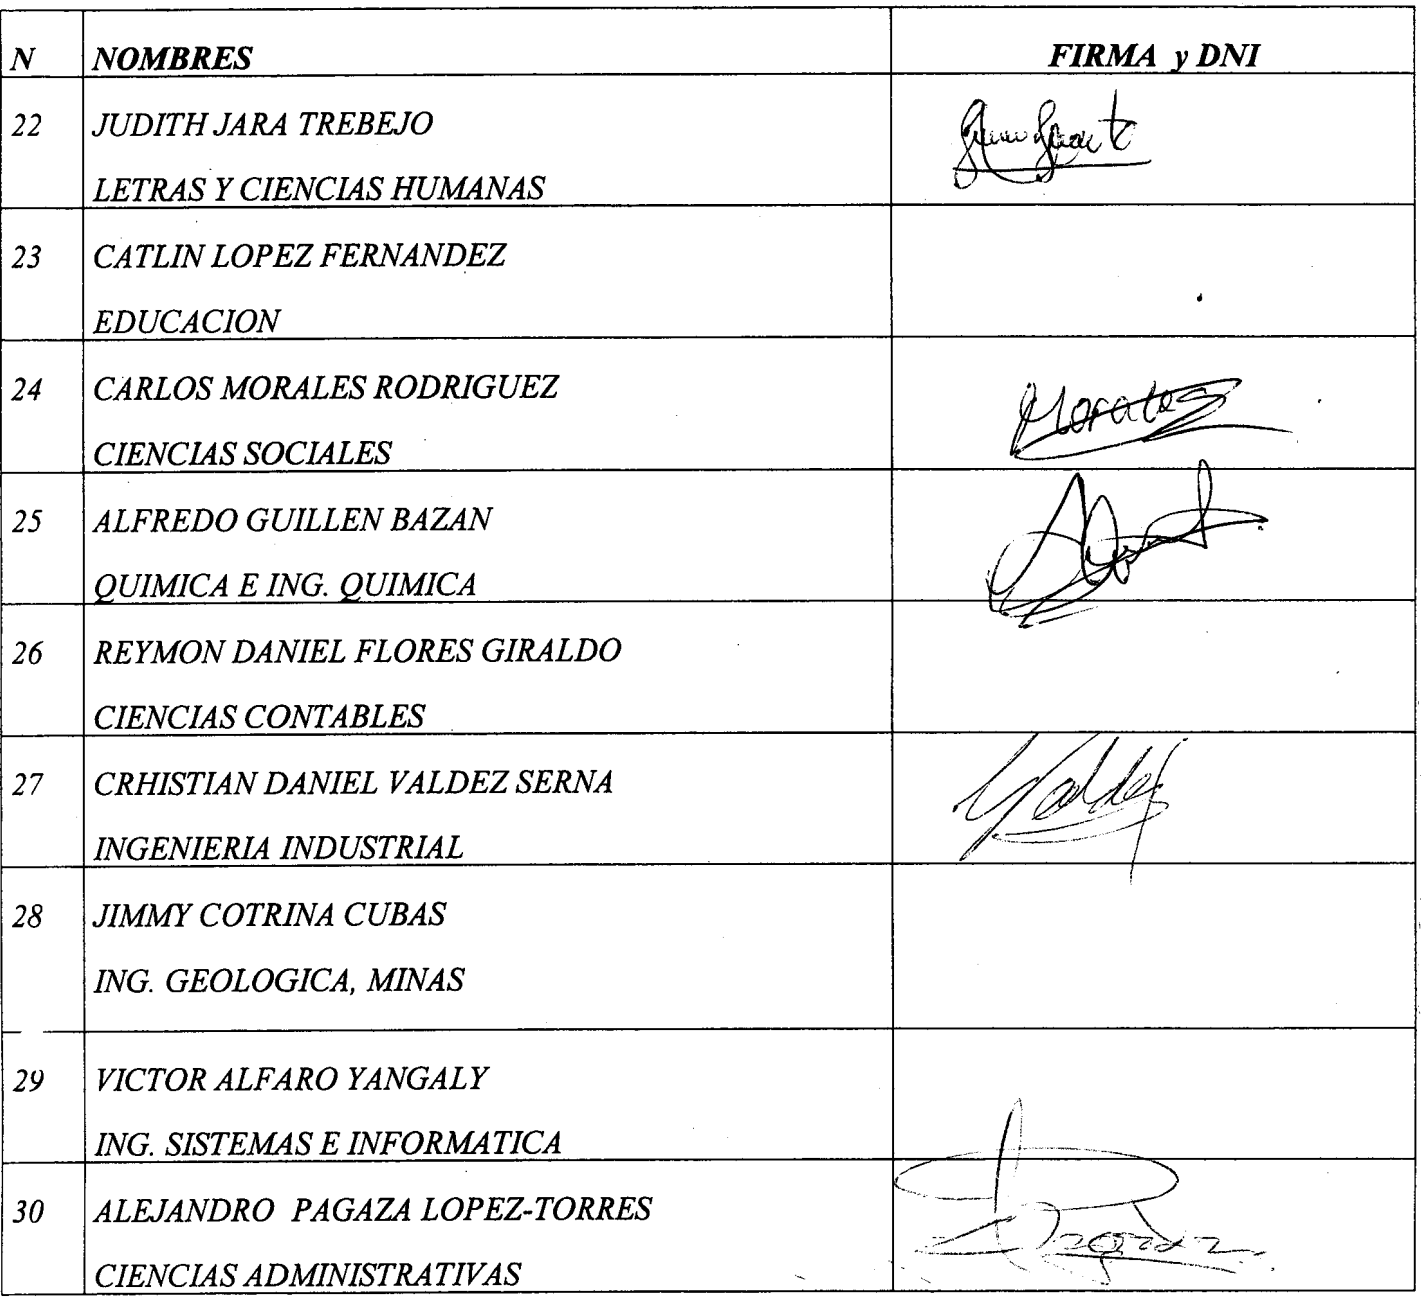 N NOMBRES FIRMA y DNI
22 JUDITH JARA TREBEJO
LETRAS Y CIENCIAS HUMANAS
23 CATLIN LOPEZ FERNANDEZ
EDUCACION
24 CARLOS MORALES RODRIGUEZ Morales
CIENCIAS SOCIALES
25 ALFREDO GUILLEN BAZAN
QUIMICA E ING. QUIMICA
26 REYMON DANIEL FLORES GIRALDO
CIENCIAS CONTABLES
27 CRHISTIAN DANIEL VALDEZ SERNA Valdez
INGENIERIA INDUSTRIAL
28 JIMMY COTRINA CUBAS
ING. GEOLOGICA, MINAS
29 VICTOR ALFARO YANGALY
ING. SISTEMAS E INFORMATICA
30 ALEJANDRO PAGAZA LOPEZ-TORRES
CIENCIAS ADMINISTRATIVAS